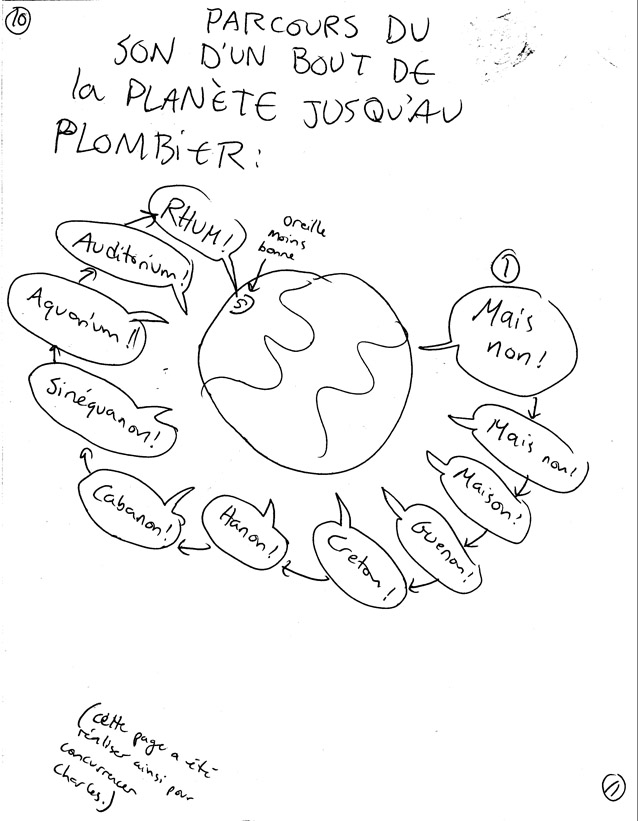 10
PARCOURS DU
SON D'UN BOUT DE
la PLANÈTE JUSQU'AU
PLOMBIER :
RHUM!
Oreille
moins
bonne
Auditorium!
1
Mais
non!
Aquarium!!
Mais non!
Sinéquanon!
Maison!
Cabanon!
Hanon!
Creton!
Guenon!
(cette page a été
réaliser ainsi pour
concurrencer
Charles.)